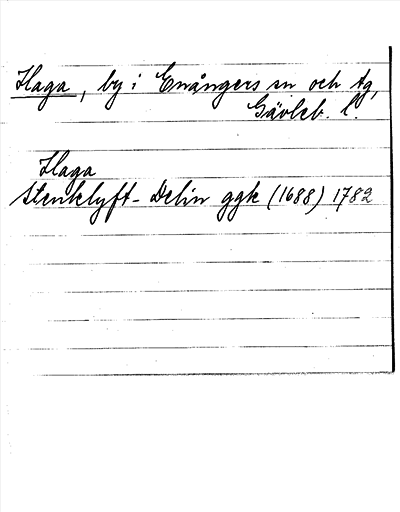 Haga, by i Enångers sn och tg,
Gävleb. l.
Haga
Stenklyft-Delin ggk (1688) 1782